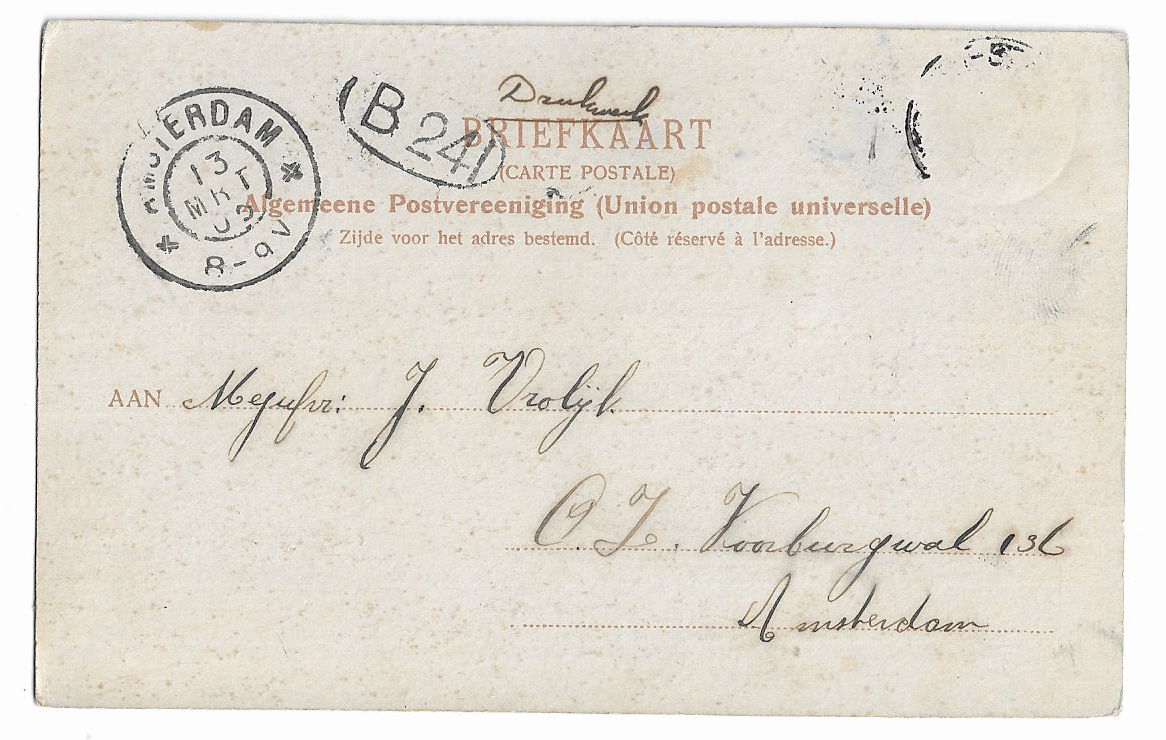 Drukwerk
BRIEFKAART
(CARTE POSTALE)
Algemeene Postvereeniging (Union postale universelle)
Zijde voor het adres bestemd. (Côté réservé à l'adresse.)
AMSTERDAM
13
MRT
8-9V
B24
AAN Mejufvr: J. Vrolijk
O.Z. Voorburgwal 136
Amsterdam